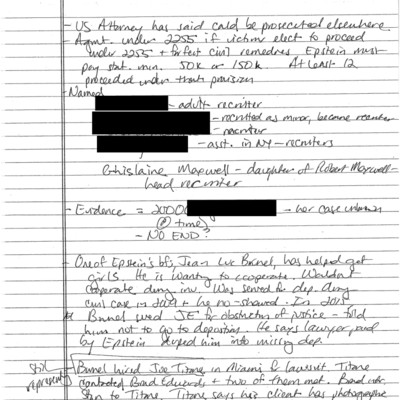 - US Attorney has said could be prosecuted elsewhere
- Agmt. under 2255 if victims elect to proceed
under 2255 + forfeit civil remedies Epstein must
pay stat. min. 50K or 150K. At least 12
proceeded under that provision
- Named
- adult recruiter
- recruited as minor, became recruiter
- recruiter
- asst. in NY - recruiters
Ghislaine Maxwell - daughter of Robert Maxwell -
head recruiter
- Evidence = 2000 - her case unknown
@ time
- NO END?
- One of Epstein's bfs, Jean Luc Brunel, has helped get
girls. He is wanting to cooperate. Wouldn't
cooperate during inv. Was served for dep. during
civil case in 2009 + he no-showed. In 2015
Brunel sued JE for obstruction of justice - told
him not to go to deposition. He says lawyer paid
by Epstein duped him into missing dep.
still represents
- Brunel hired Joe Titone in Miami for lawsuit. Titone
contacted Brad Edwards + two of them met. Brad
to Titone. Titone says his client has photographs